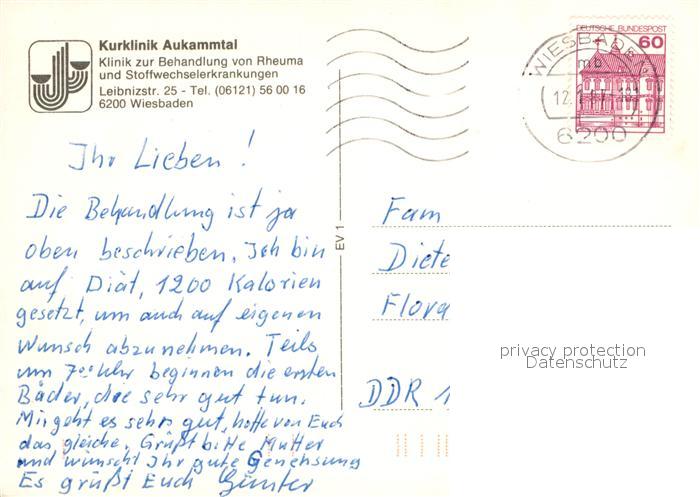 Kurklinik Aukammtal
Klinik zur Behandlung von Rheuma
und Stoffwechselerkrankungen
Leibnizstr. 25 - Tel. (06121) 56 00 16
6200 Wiesbaden
DEUTSCHE BUNDESPOST
60
WIESBADEN
mb
6200
Ihr Lieben!
Die Behandlung ist ja
oben beschrieben. Ich bin
auf Diät, 1200 Kalorien
gesetzt, um auch auf eigenen
Wunsch abzunehmen. Teils
um 7⁰⁰ Uhr beginnen die ersten
Bäder, die sehr gut tun.
Mir geht es sehr gut, hoffe von Euch
das gleiche. Grüßt bitte Mutter
und wünscht Ihr gute Genehsung
Es grüßt Euch Günter
EV 1
Fam
Diete
Flora
DDR 1
privacy protection
Datenschutz